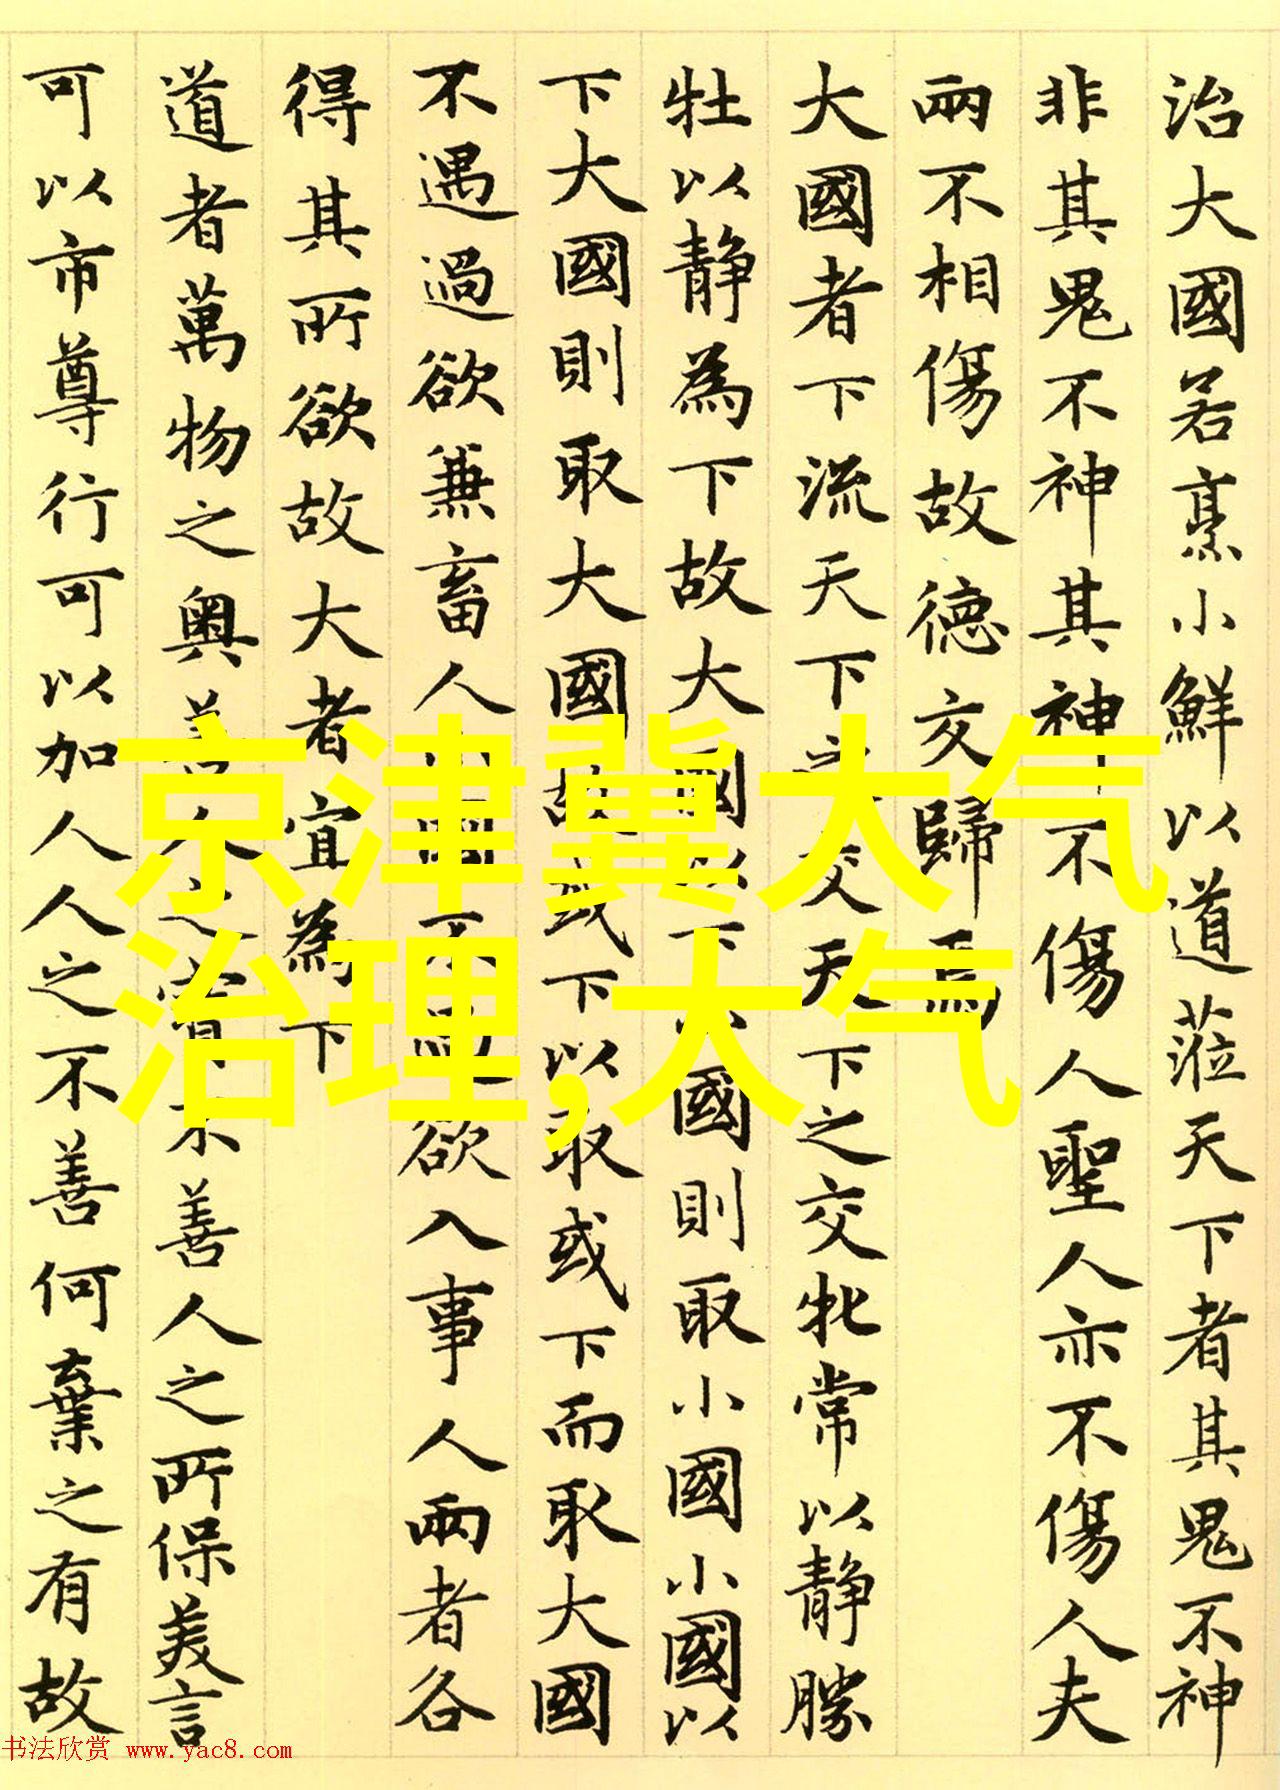 治大國若烹小鮮以道蒞天下者其鬼不神
非其鬼不神其神不傷人聖人亦不傷人夫
兩不相傷故德交歸焉
大國者下流天下之交天下之交牝常以静勝
牡以静為下故大國以下小國則取小國小國以
下大國則取大國故或下以取或下而取大國
不遇過欲兼畜人小國不過欲入事人兩者各
得其所欲故大者宜為下
道者萬物之奧善人之寳不善人之所保美言
可以市尊行可以加人人之不善何棄之有故
京津冀大气
治理,大气
书法欣赏 www.yac8.com